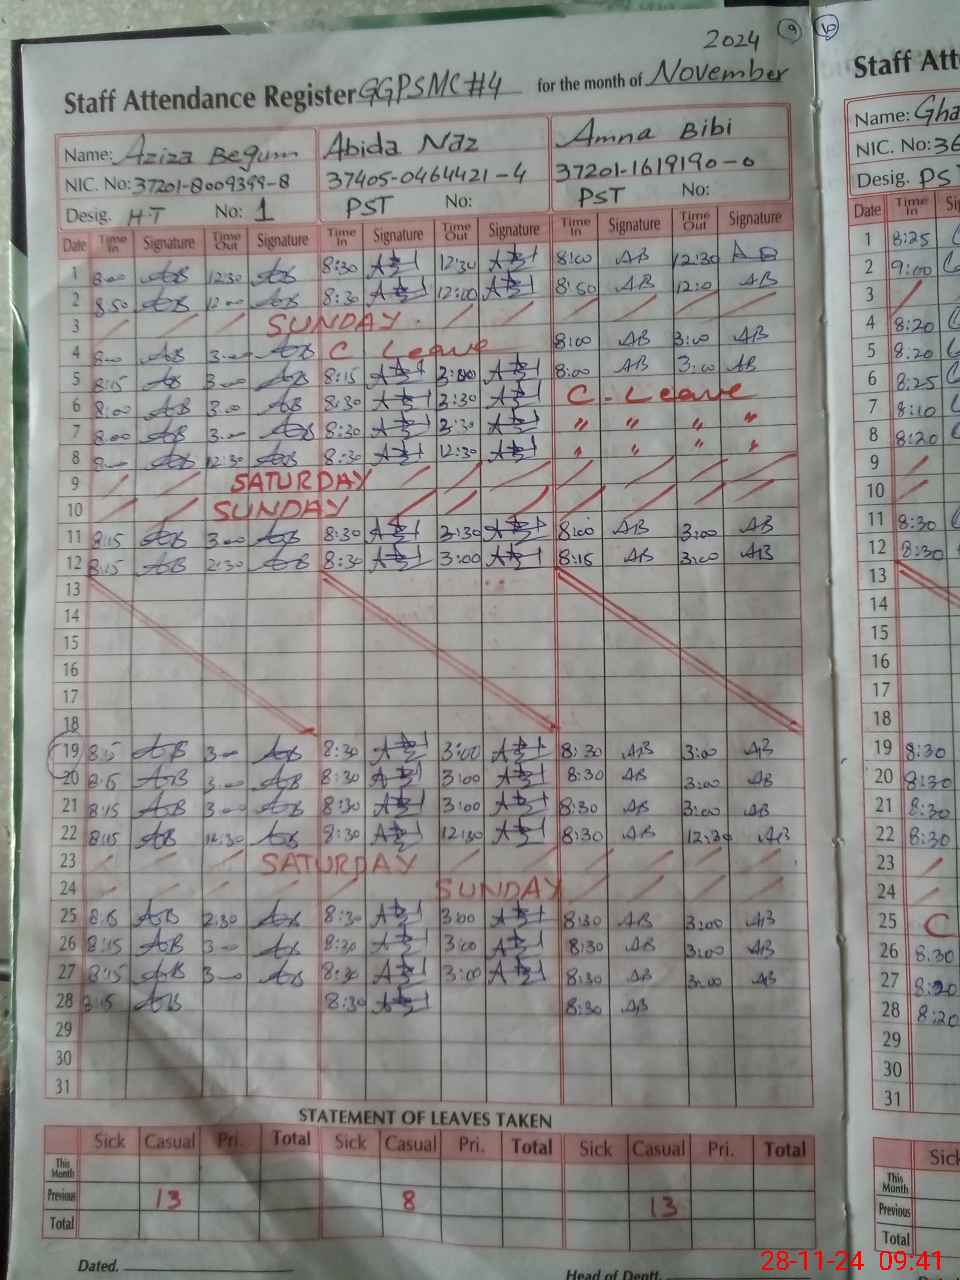 2024 9 10
Staff Attendance Register GGPSMC#4 for the month of November
Name: Aziza Begum Abida Naz Amna Bibi
NIC. No: 37201-8009399-8 37405-0464421-4 37201-1619190-0
Desig. H.T No: 1 PST No: PST No:
Date Time In Signature Time Out Signature Time In Signature Time Out Signature Time In Signature Time Out Signature
1 8:00 AB 12:30 AB 8:30 12:30 8:00 AB 12:30 AB
2 8:50 AB 12:00 AB 8:30 12:00 8:50 AB 12:0 AB
3 SUNDAY
4 8:00 AB 3:00 AB C Leave 8:00 AB 3:00 AB
5 8:15 AB 3:00 AB 8:15 8:00 AB 3:00 AB
6 8:00 AB 3:00 AB 8:30 2:30 C-Leave
7 8:00 AB 3:00 AB 8:30 2:30 " " " "
8 8:00 AB 12:30 AB 8:30 12:30 " " " "
9 SATURDAY
10 SUNDAY
11 8:15 AB 3:00 AB 8:30 2:30 8:00 AB 3:00 AB
12 8:15 AB 2:30 AB 8:30 3:00 8:15 AB 3:00 AB
13
14
15
16
17
18
19 8:15 AB 3:00 AB 8:30 3:00 8:30 AB 3:00 AB
20 8:15 AB 3:00 AB 8:30 3:00 8:30 AB 3:00 AB
21 8:15 AB 3:00 AB 8:30 3:00 8:30 AB 3:00 AB
22 8:15 AB 12:30 AB 8:30 12:30 8:30 AB 12:30 AB
23 SATURDAY
24 SUNDAY
25 8:15 AB 2:30 AB 8:30 3:00 8:30 AB 3:00 AB
26 8:15 AB 3:00 AB 8:30 3:00 8:30 AB 3:00 AB
27 8:15 AB 3:00 AB 8:30 3:00 8:30 AB 3:00 AB
28 8:15 AB 8:30 8:30 AB
29
30
31
STATEMENT OF LEAVES TAKEN
Sick Casual Pri. Total Sick Casual Pri. Total Sick Casual Pri. Total
This Month
Previous 13 8 13
Total
Dated. Head of Deptt.
Staff Att
Name: Gha
NIC. No: 36
Desig. PST
Date Time In
1 8:25
2 9:00
3
4 8:20
5 8:20
6 8:25
7 8:10
8 8:20
9
10
11 8:30
12 8:30
13
14
15
16
17
18
19 8:30
20 8:30
21 8:30
22 8:30
23
24
25 C
26 8:30
27 8:20
28 8:20
29
30
31
Sick
This Month
Previous
Total
28-11-24 09:41